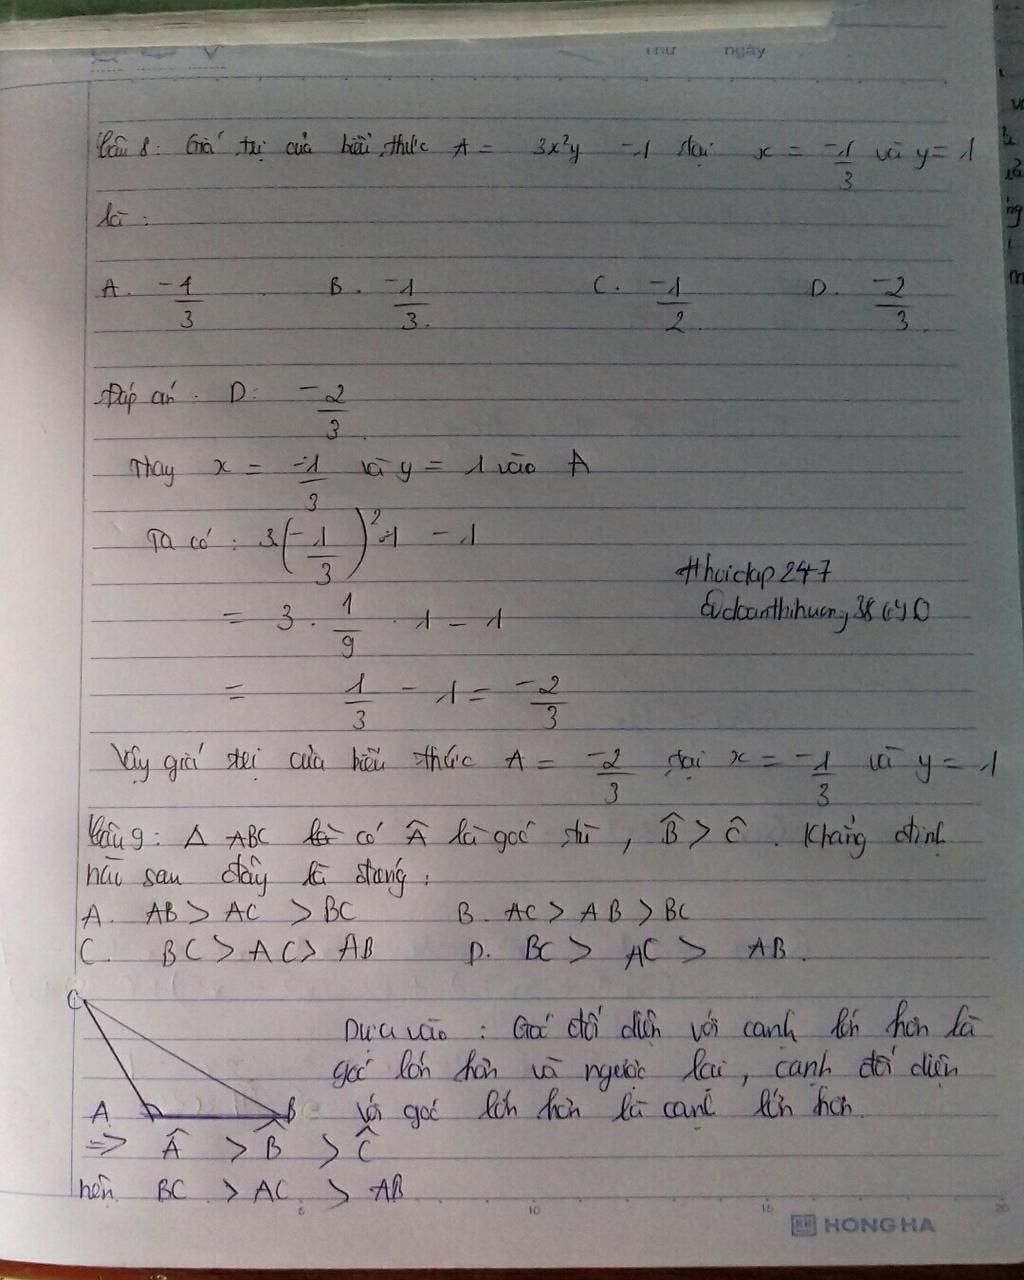 Thứ ngày
Câu 8: Giá trị của biểu thức A = 3x²y - 1 tại x = -1/3 và y = 1
là:
A. -4/3 B. -1/3. C. -1/2. D. -2/3.
Đáp án: D: -2/3.
Thay x = -1/3 và y = 1 vào A
Ta có: 3(-1/3)².1 - 1
= 3 . 1/9 . 1 - 1
#hoidap247
= 1/3 - 1 = -2/3
Vậy giá trị của biểu thức A = -2/3 tại x = -1/3 và y = 1
Câu 9: Δ ABC có Â là góc tù, B̂ > Ĉ. Khẳng định
nào sau đây là đúng:
A. AB > AC > BC B. AC > AB > BC
C. BC > AC > AB D. BC > AC > AB.
C
Dựa vào: Góc đối diện với cạnh lớn hơn là
góc lớn hơn và ngược lại, cạnh đối diện
A B với góc lớn hơn là cạnh lớn hơn.
=> Â > B̂ > Ĉ
nên BC > AC > AB
5 10 15 20
HONG HA